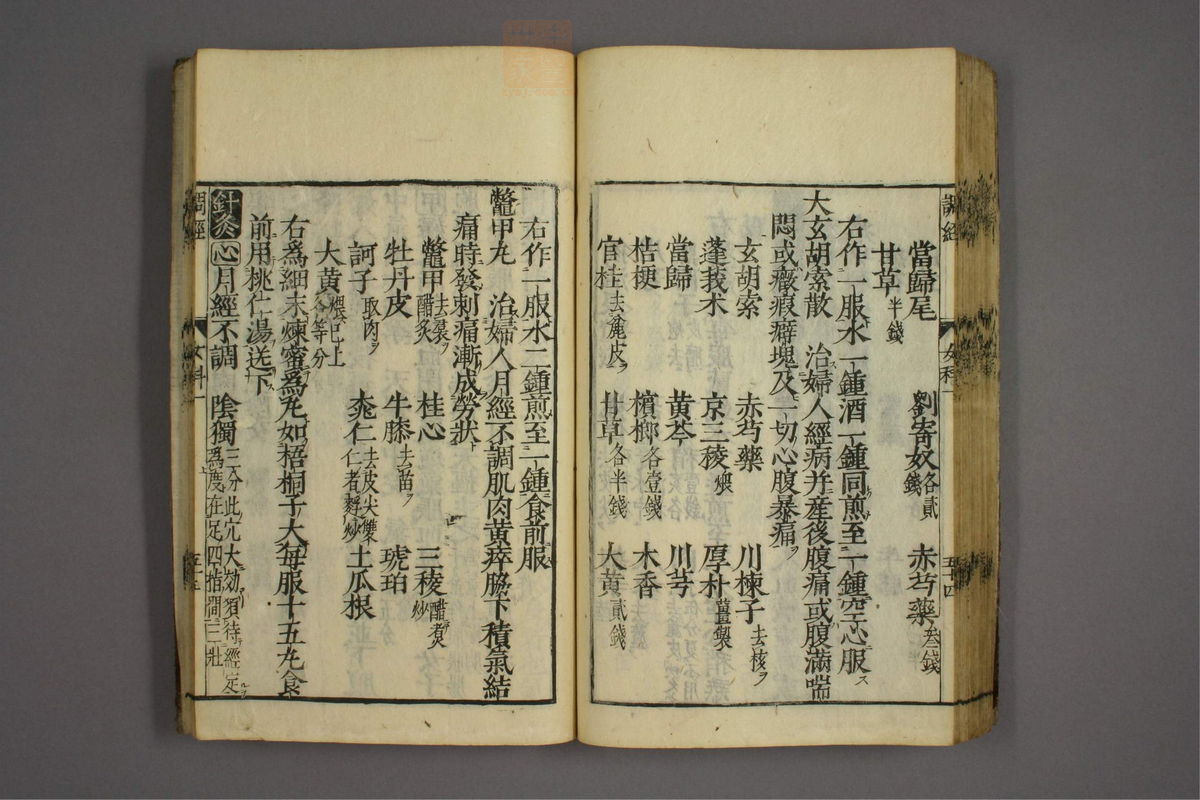 調經
女科一
五十四
當歸尾 劉寄奴各貳錢 赤芍藥叁錢
甘草半錢
右作一服水一鍾酒一鍾同煎至一鍾空心服ス
大玄胡索散 治婦人經病并産後腹痛或腹滿喘
悶或癥瘕癖塊及一切心腹暴痛ヲ
玄胡索 赤芍藥 川楝子去核ヲ
蓬莪术 京三稜煨 厚朴薑製
當歸 黄芩 川芎
桔梗 檳榔各壹錢 木香
官桂去麄皮ヲ 甘草各半錢 大黄貳錢
右作一服水二鍾煎至一鍾食前服
鼈甲丸 治婦人月經不調肌肉黄瘁脇下積氣結
痛時發刺痛漸成勞狀
鼈甲去裙ヲ醋炙 桂心 三稜醋煮炒
牡丹皮 牛膝去苗ヲ 琥珀
訶子取肉ヲ 桃仁去皮尖雙仁者麩炒 土瓜根
大黄煨已上各等分
右爲細末煉蜜爲丸如梧桐子大每服十五丸食
前用桃仁湯送下
針灸 心月經不調 陰獨三分此穴大効須待經定爲度在足四指間三壯
調經
女科一